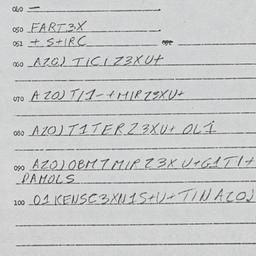 040 —
050 FART3X
051 + S+IRC
060 AZOJ TICI Z3XU+
070 AZOJ T/1-+MIRZ3XU+
080 AZOJ T1TERZ3XU+ OL1
090 AZOJOBM7MIRZ3XU+G1TI+
DAMOLS
100 01KENSC3XN1S+U+TINAZOJ